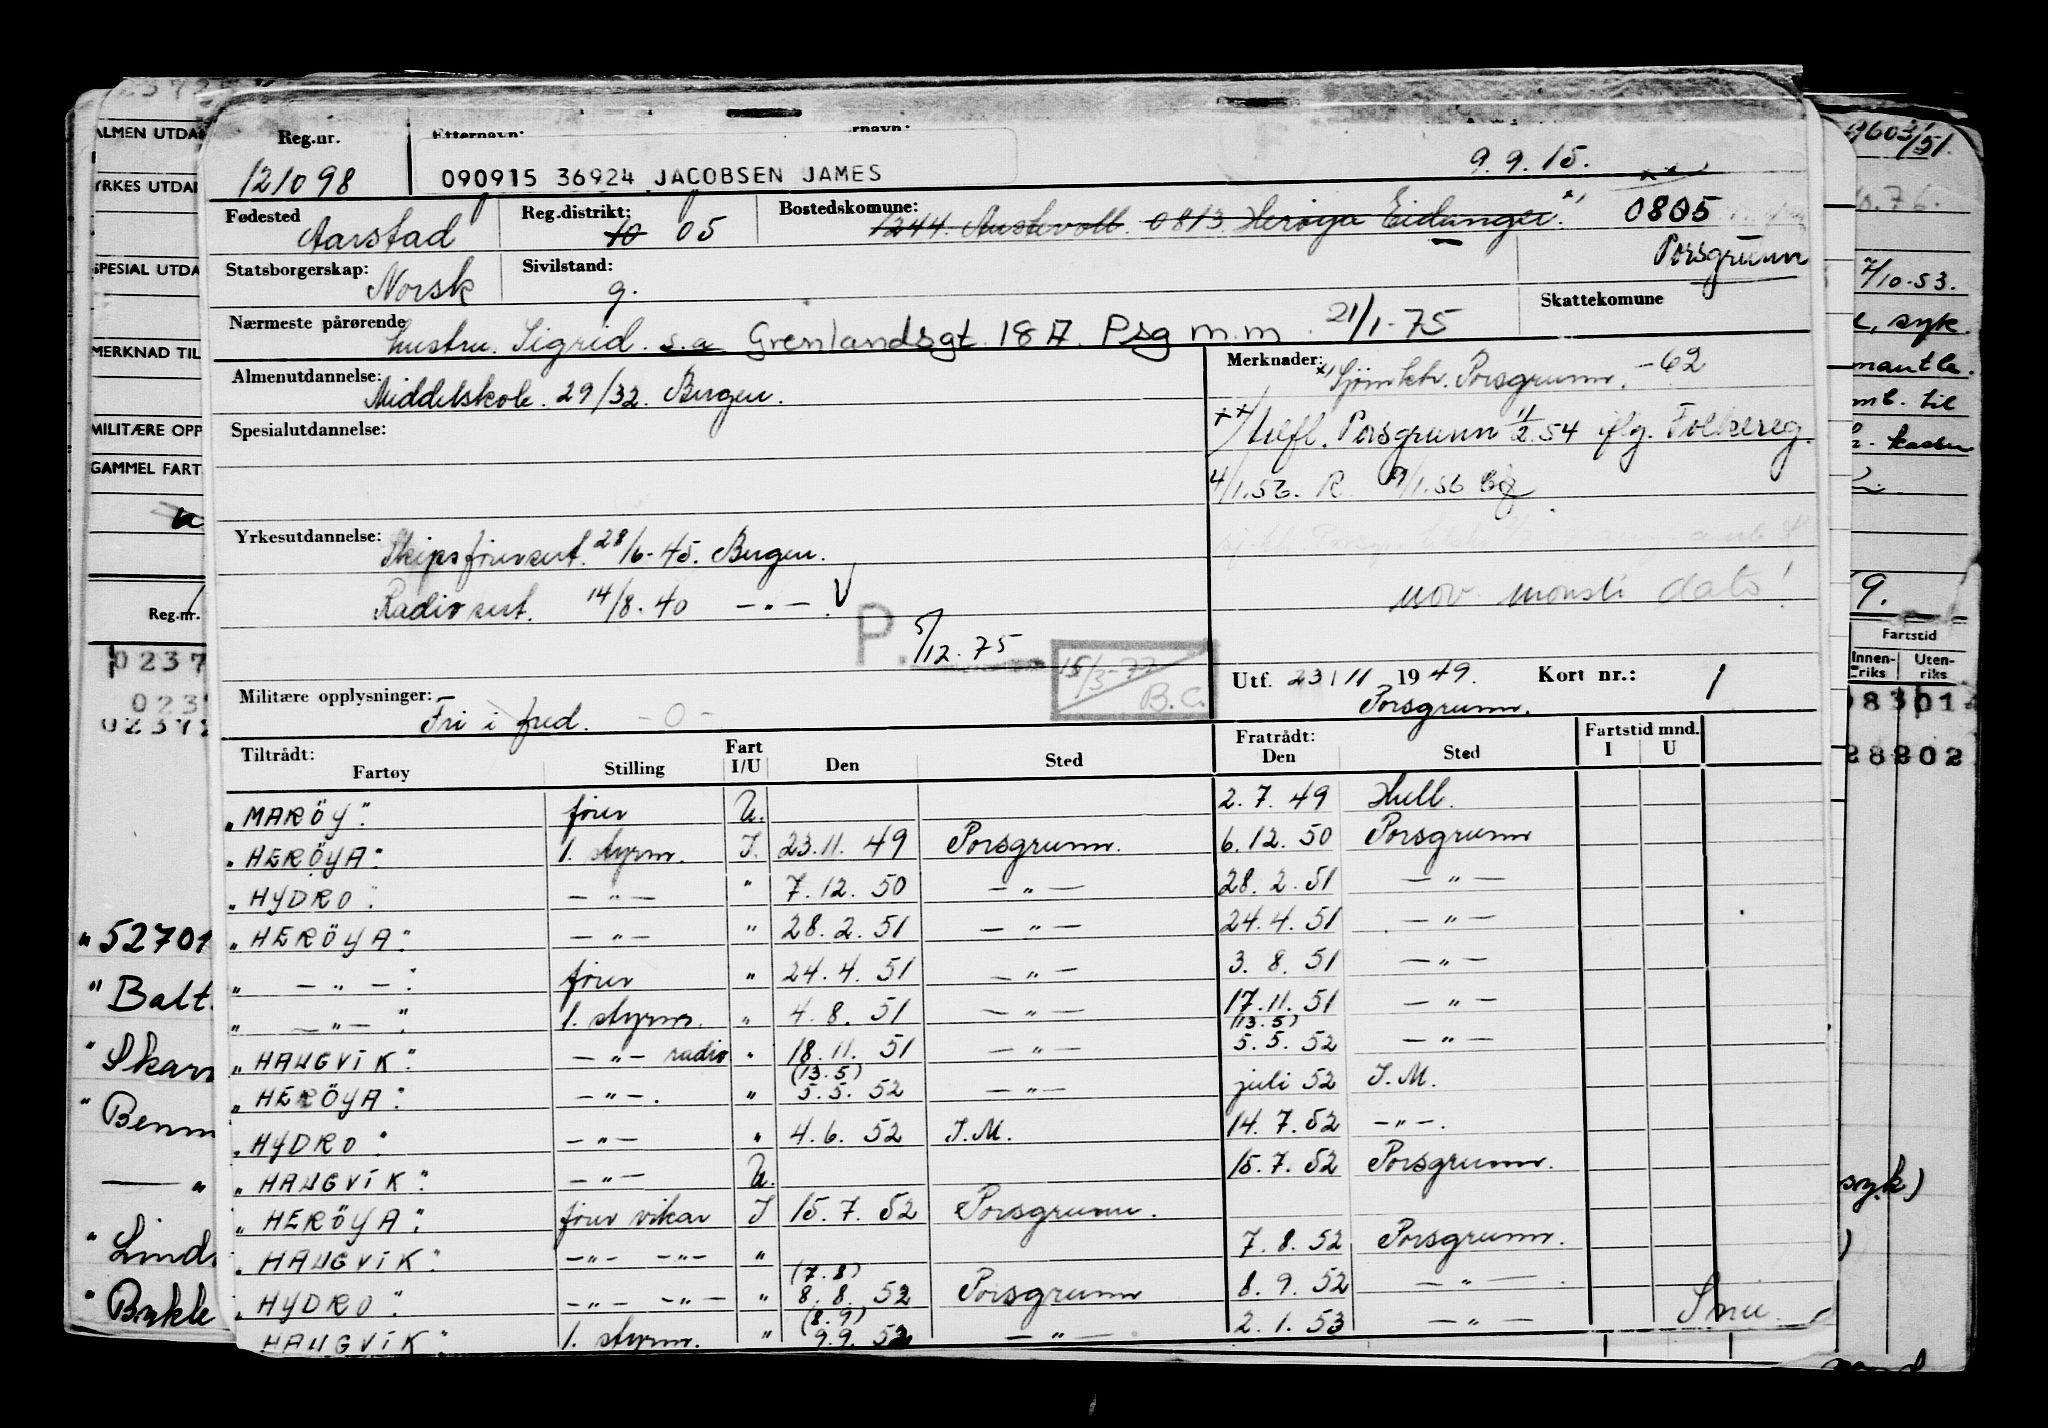 Reg.nr. Etternavn:
121098 090915 36924 JACOBSEN JAMES 9.9.15.
Fødested Aarstad Reg.distrikt: 10 05 Bostedskommune: 1244 Austevoll. 0813 Herøya Eidanger x) 0805 Porsgrunn
Statsborgerskap: Norsk Sivilstand: g.
Skattekomune
Nærmeste pårørende hustru. Sigrid. s.a. Grenlandsgt. 18 A. Psg m.m. 21/1-75
Almenutdannelse: Middelskole. 29/32. Bergen.
Merknader: x) Sjømktr. Porsgrunn. -62
xx) tilfl. Porsgrunn 11/2.54 iflg. Folkereg.
4/1.56. R. 9/1.56
Spesialutdannelse:
Yrkesutdannelse: Skipsførersert. 28/6-45. Bergen.
Radiosert. 14/8.40 — " — . V
nov. mønstr dato!
P. 5/12.75
15/3-77 B.C.
Utf. 23/11 1949. Kort nr.: 1
Porsgrunn.
Militære opplysninger: Fri i fred. -0-
Tiltrådt: Fratrådt: Fartstid mnd.
Fartøy Stilling Fart I/U Den Sted Den Sted I U
"MARÖY" fører U. 2.7.49 Hull.
"HERÖYA" 1. styrm. I. 23.11.49 Porsgrunn. 6.12.50 Porsgrunn
"HYDRO" — " — " 7.12.50 — " — 28.2.51 — " —
"HERÖYA" — " — " 28.2.51 — " — 24.4.51 — " —
" — " — " fører " 24.4.51 — " — 3.8.51 — " —
" — " — " 1. styrm. " 4.8.51 — " — 17.11.51 — " —
"HAUGVIK" — " — radio " 18.11.51 — " — (13.5) 5.5.52 — " —
"HERÖYA" — " — . " (13.5) 5.5.52 — " — juli 52 I.M.
"HYDRO" — " — " 4.6.52 I.M. 14.7.52 — " — .
"HAUGVIK" — " — U. 15.7.52 Porsgrunn.
"HERÖYA" fører vikar I 15.7.52 Porsgrunn.
"HAUGVIK" — " — — " — " 7.8.52 Porsgrunn.
"HYDRO" — " — — " — " (7.8) 8.8.52 Porsgrunn 8.9.52 — " —
"HAUGVIK" 1. styrm. " (8.9) 9.9.52 — " — 2.1.53 — " — Snu.
ALMEN UTDA
YRKES UTDA
SPESIAL UTDA
MERKNAD TIL
MILITÆRE OPP
GAMMEL FART
Reg.nr.
0237
023
02372
"52701
"Balt
"Skar
"Benm
— "
"Lind
"Bykle
603/51.
10.76.
7/10-53.
syk.
mantle.
til
kassen
9.
Fartstid
Innenriks Utenriks
083014
28202
syk)
)